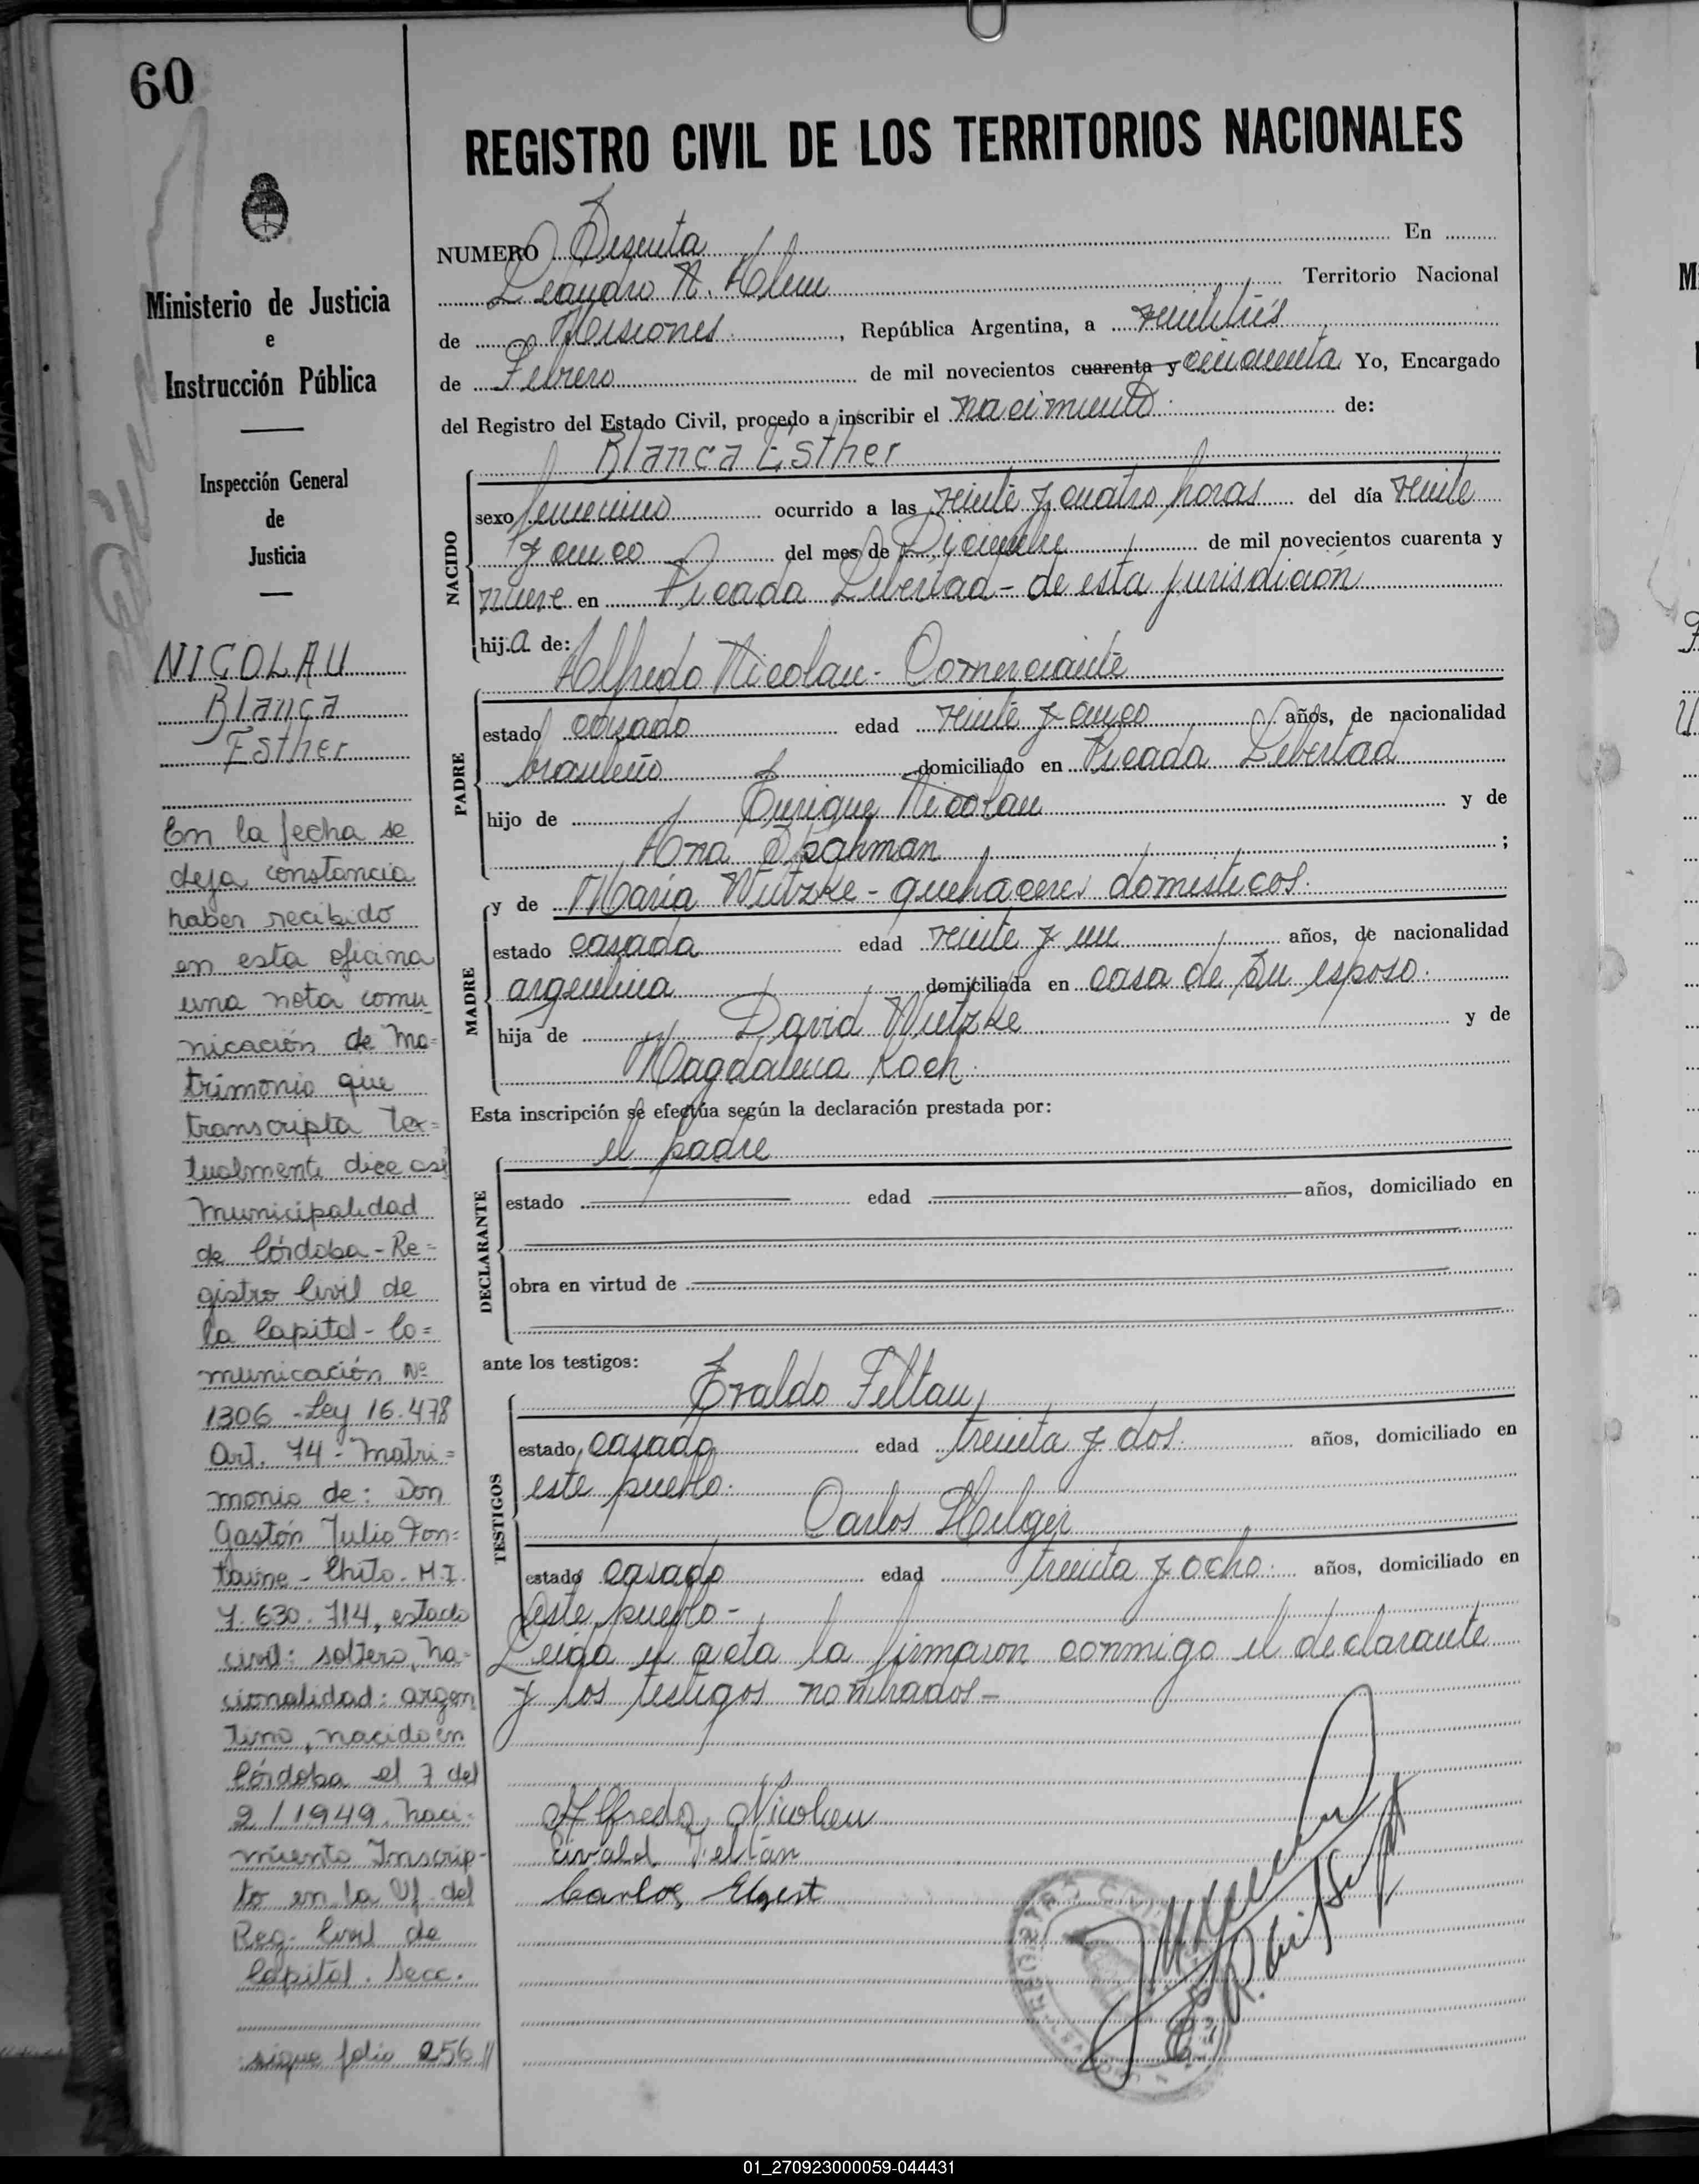 60
REGISTRO CIVIL DE LOS TERRITORIOS NACIONALES
Ministerio de Justicia
e
Instrucción Pública
Inspección General
de
Justicia
NICOLAU
Blanca
Esther
En la fecha se
deja constancia
haber recibido
en esta oficina
una nota comu_
nicación de ma=
trimonio que
transcripta tex=
tualmente dice asi
Municipalidad
de Córdoba - Re=
gistro Civil de
la Capital - Co=
municación Nº
1306 - Ley 16.478
Art. 74 - Matri=
monio de: Don
Gastón Julio Fon=
taine - Chito. M.I.
7.630.714, estado
civil: soltero, na=
cionalidad: argen
tino, nacido en
Córdoba el 7 del
2/1949. naci-
miento Inscrip-
to en la Of. del
Reg. Civil de
Capital. Secc.
sigue folio 256 //
NUMERO Sesenta En
Leandro N. Alem Territorio Nacional
de Misiones , República Argentina, a veintitrés
de Febrero de mil novecientos cuarenta y cincuenta Yo, Encargado
del Registro del Estado Civil, procedo a inscribir el nacimiento de:
Blanca Esther
NACIDO
sexo femenino ocurrido a las veinte y cuatro horas del día veinte
y cinco del mes de Diciembre de mil novecientos cuarenta y
nueve en Picada Libertad - de esta jurisdicion
hij.a de:
Alfredo Nicolau - Comerciante
PADRE
estado casado edad veinte y cinco años, de nacionalidad
brasileño domiciliado en Picada Libertad
hijo de Enrique Nicolau y de
Ana ;
MADRE
y de María Wutzke - quehaceres domesticos.
estado casada edad veinte y un años, de nacionalidad
argentina domiciliada en casa de su esposo.
hija de David Wutzke y de
Magdalena Koch.
Esta inscripción se efectúa según la declaración prestada por:
el padre
DECLARANTE
estado edad años, domiciliado en
obra en virtud de
ante los testigos:
Evaldo Feltau
TESTIGOS
estado casado edad treinta y dos. años, domiciliado en
este pueblo.
Carlos
estado casado edad treinta y ocho. años, domiciliado en
este pueblo -
Leida el acta la firmaron conmigo el declarante
y los testigos nombrados -
Alfredo Nicolau
Feltan
Carlos
01_270923000059-044431